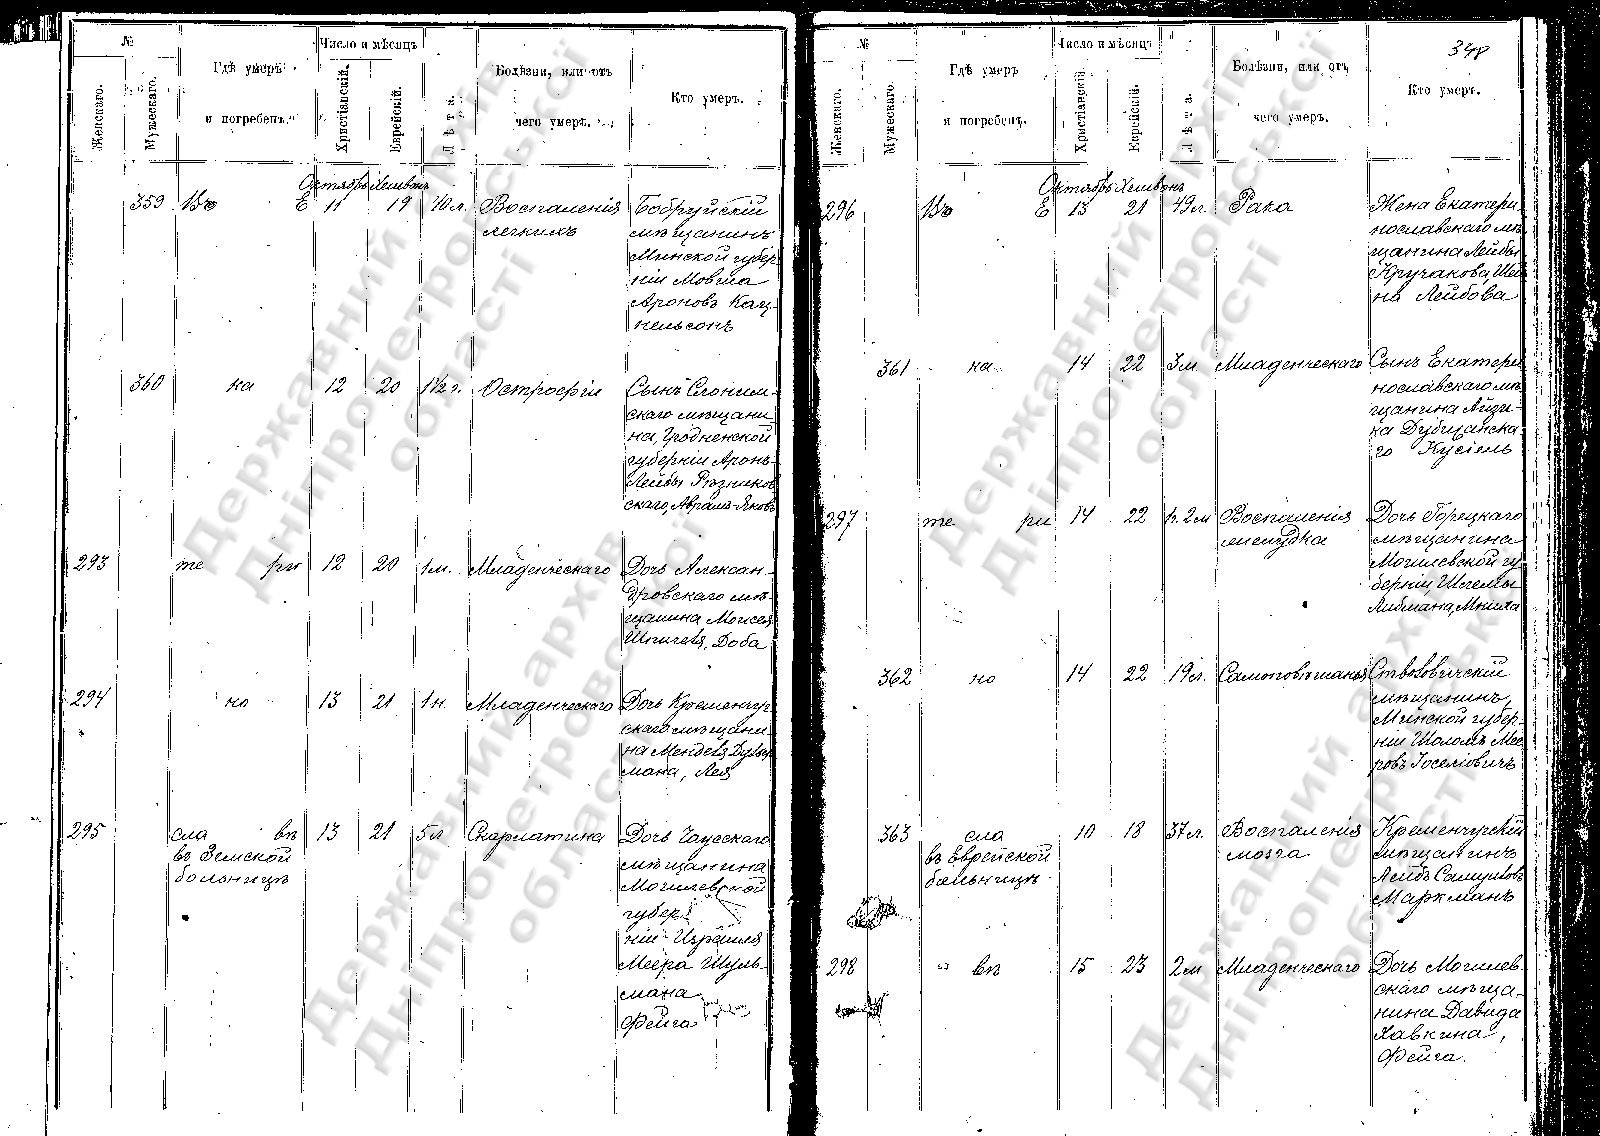 №
Женскаго.
Мужескаго.
Гдѣ умеръ
и погребенъ.
Число и мѣсяцъ
Христіанскій.
Еврейскій.
Лѣта.
Болѣзни, или отъ
чего умеръ.
Кто умеръ.
Октябрь Хешвонъ
359 Въ Е 11 19 70 л. Воспаленія
легкихъ
Бобруйскій
мѣщанинъ
Минской губер-
ніи Мовша
Ароновъ Кац-
нельсонъ
360 ка 12 20 1½ г. Острофіи
Сынъ Слоним-
скаго мѣщани
на, Гродненской
губерніи Аронъ-
Лейбы Рѣзников
скаго, Аврамъ-Яковъ
293 те ри 12 20 1 м. Младенческаго
Дочь Алексан-
дровскаго мѣ-
щанина Моисея
Шпигеля, Доба
294 но 13 21 1 н. Младенческаго
Дочь Кременчуг-
скаго мѣщани-
на Менделя
мана, Лея
295 сла въ 13 21 5 л Скарлатина
въ Земской
больницѣ
Дочь Чаусскаго
мѣщанина
Могилевской
губер
ніи Израиля
Меера Шуль-
мана
Фейга
348
№
Женскаго.
Мужескаго.
Гдѣ умеръ
и погребенъ.
Число и мѣсяцъ
Христіанскій.
Еврейскій.
Лѣта.
Болѣзни, или отъ
чего умеръ.
Кто умеръ.
Октябрь Хешвонъ
296 Въ Е 13 21 49 л. Рака
Жена Екатери
нославскаго мѣ
щанина Лейбы
Кручакова, Шей
на Лейбова
361 ка 14 22 3 м Младенческаго
Сынъ Екатери
нославскаго мѣ
щанина Айзи-
ка Дубщанска-
го Кусіель
297 те ри 14 22 1 г. 2 м Воспаленія
желудка
Дочь Горецкаго
мѣщанина
Могилевской гу-
берніи, Шлемы
Либмана, Мнила
362 но 14 22 19 л. Самоповѣшанья
Ствововичскій
мѣщанинъ,
Минской губер-
ніи Шоломъ Мее
ровъ Іоселіовичъ
363 сла 10 18 37 л. Воспаленія
мозга
въ Еврейской
больницѣ
Кременчугскій
мѣщанинъ
Лейбъ Самуиловъ
Маркманъ
298 въ 15 23 2 м Младенческаго
Дочь Могилев
скаго мѣща-
нина Давида
Хавкина,
Фейга.
Державний архів
Дніпропетровської
області